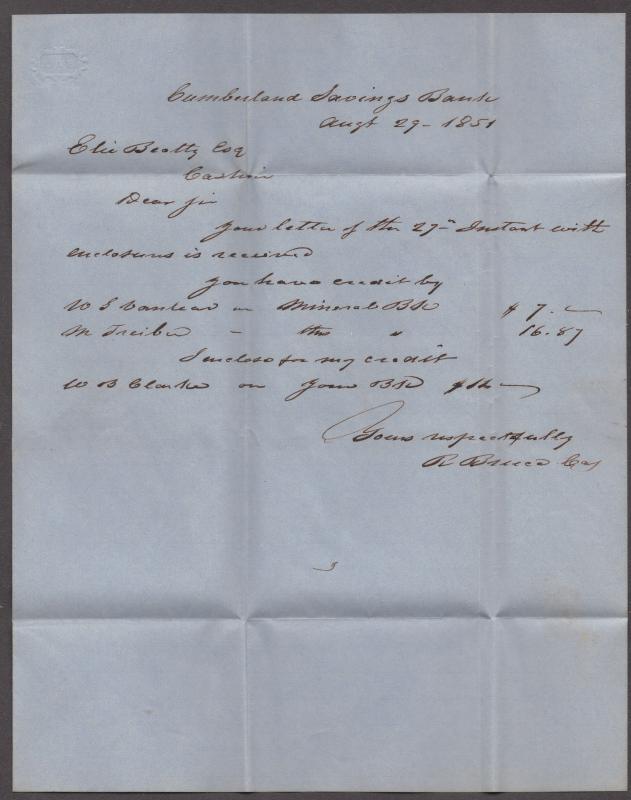 Cumberland Savings Bank
Augt 29 - 1851
Elie Beatty Esq
Cashier
Dear Sir
Your letter of the 27th Instant with
enclosures is received
You have credit by
W S on Mineral Bk $ 7.—
M Treiber - this " 16.87
I enclose for my credit
W B Clarke on Your Bk
Yours respectfully
R Bruce Cas